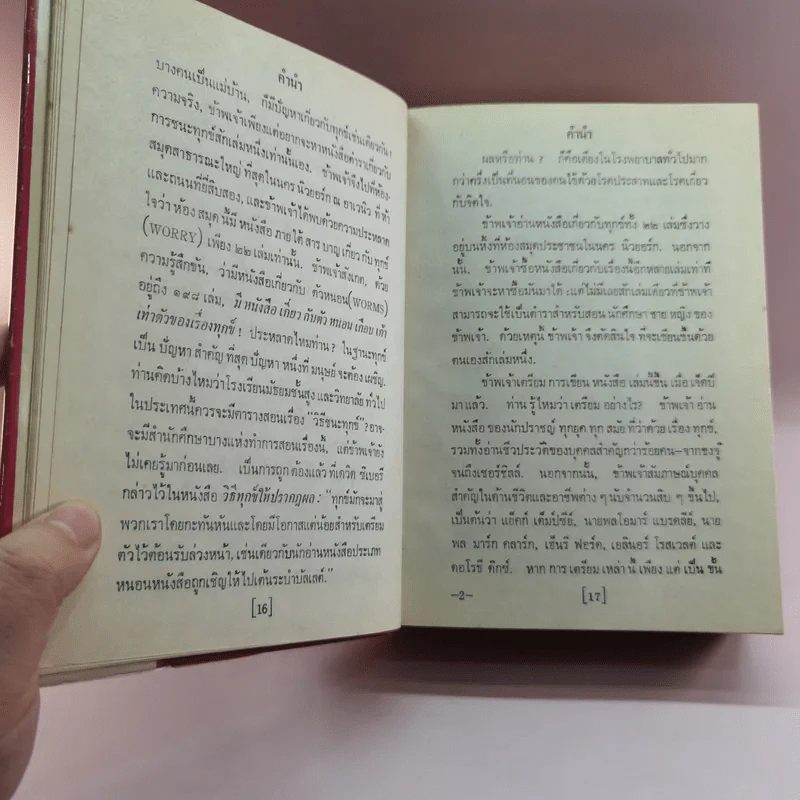 คำนำ
บางคนเป็นแม่บ้าน, ก็มีปัญหาเกี่ยวกับทุกข์เช่นเดียวกัน !
ความจริง, ข้าพเจ้าเพียงแต่อยากจะหาหนังสือตำราเกี่ยวกับ
การชนะทุกข์สักเล่มหนึ่งเท่านั้นเอง. ข้าพเจ้าจึงไปที่ห้อง-
สมุดสาธารณะใหญ่ ที่สุดในนคร นิวยอร์ก ณ อาเวนิว ที่ ห้า
และถนนที่ยี่สิบสอง, และข้าพเจ้าได้พบด้วยความประหลาด
ใจว่า ห้อง สมุด นี้มี หนังสือ ภายใต้ สาร บาญ เกี่ยว กับ ทุกข์
(WORRY) เพียง ๒๒ เล่มเท่านั้น. ข้าพเจ้าสังเกต, ด้วย
ความรู้สึกขัน, ว่ามีหนังสือเกี่ยวกับ ตัวหนอน(WORMS)
อยู่ถึง ๑๙๘ เล่ม, มี หนังสือ เกี่ยว กับตัว หนอน เกือบ เก้า
เท่าตัวของเรื่องทุกข์ ! ประหลาดไหมท่าน ? ในฐานะทุกข์
เป็น ปัญหา สำคัญ ที่สุด ปัญหา หนึ่งที่ มนุษย์ จะต้อง เผชิญ.
ท่านคิดบ้างไหมว่าโรงเรียนมัธยมชั้นสูง และวิทยาลัย ทั่วไป
ในประเทศนี้ควรจะมีตารางสอนเรื่อง "วิธีชนะทุกข์" ? อาจ-
จะมีสำนักศึกษาบางแห่งทำการสอนเรื่องนี้, แต่ข้าพเจ้ายัง
ไม่เคยรู้มาก่อนเลย. เป็นการถูก ต้องแล้ว ที่เดวิด ซีเบอรี
กล่าวไว้ในหนังสือ วิธีทุกข์ให้ปรากฏผล : "ทุกข์มักจะมาสู่
พวกเราโดยกะทันหันและโดยมีโอกาสแต่น้อยสำหรับเตรียม
ตัวไว้ต้อนรับล่วงหน้า, เช่นเดียวกับนักอ่านหนังสือประเภท
หนอนหนังสือถูกเชิญให้ไปเต้นระบำบัลเลต์."
[16]
คำนำ
ผลหรือท่าน ? ก็คือเตียงในโรงพยาบาลทั่วไปมาก
กว่าครึ่งเป็นที่นอนของคนไข้ด้วยโรคประสาทและโรคเกี่ยว
กับจิตใจ.
ข้าพเจ้าอ่านหนังสือเกี่ยวกับทุกข์ทั้ง ๒๒ เล่มซึ่งวาง
อยู่บนหิ้งที่ห้องสมุดประชาชนในนคร นิวยอร์ก. นอกจาก
นั้น. ข้าพเจ้าซื้อหนังสือเกี่ยวกับเรื่องนี้อีกหลายเล่มเท่าที่
ข้าพเจ้าจะหาซื้อมันมาได้ : แต่ไม่มีเลยสักเล่มเดียวที่ข้าพเจ้า
สามารถจะใช้เป็นตำราสำหรับสอน นักศึกษา ชาย หญิง ของ
ข้าพเจ้า. ด้วยเหตุนี้ ข้าพเจ้า จึงตัดสินใจ ที่จะเขียนขึ้นด้วย
ตนเองสักเล่มหนึ่ง.
ข้าพเจ้าเตรียม การเขียน หนังสือ เล่มนี้ขึ้น เมื่อ เจ็ดปี
มา แล้ว. ท่าน รู้ ไหมว่า เตรียม อย่างไร? ข้าพเจ้า อ่าน
หนังสือ ของ นักปราชญ์ ทุกยุค ทุก สมัย ที่ว่าด้วย เรื่อง ทุกข์,
รวมทั้งอ่านชีวประวัติของบุคคลสำคัญกว่าร้อยคน—จากขงจู๊
จนถึงเชอร์ชิลล์. นอกจากนั้น, ข้าพเจ้าสัมภาษณ์บุคคล
สำคัญในด้านชีวิตและอาชีพต่าง ๆ นับจำนวนสิบ ๆ ขึ้นไป,
เป็นต้นว่า แย็คก์ เด็มป์ซีย์, นายพลโอมาร์ แบรดลีย์, นาย
พล มาร์ก คลาร์ก, เฮ็นรี่ ฟอร์ด, เอลินอร์ โรสเวลต์ และ
ดอโรธี ดิกซ์. หาก การ เตรียม เหล่า นี้ เพียง แต่ เป็น ขั้น
—2— [17]